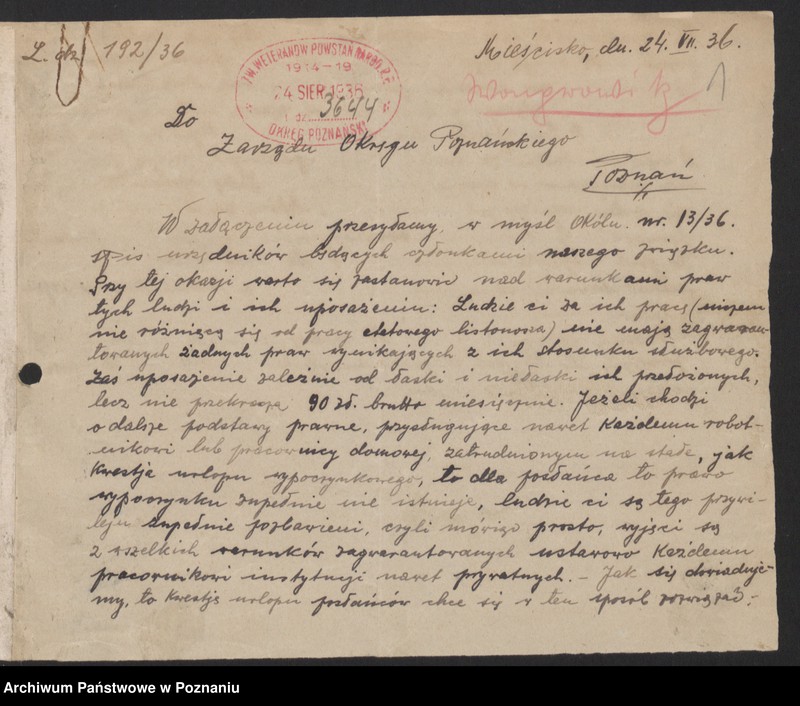 L. dz. 192/36
Mieścisko, dn. 24. VII. 36.
ZW. WETERANÓW POWSTAŃ NAROD. R.P.
1914-19
24 SIER. 1936
L. dz. 3644
OKRĘG POZNAŃSKI
Wongrowitz
Do
Zarządu Okręgu Poznańskiego
Poznań
W załączeniu przesyłamy, w myśl Okóln. nr. 13/36.
spis urzędników będących członkami naszego związku.
Przy tej okazji warto się zastanowić nad warunkami praw
tych ludzi i ich uposażeniu: Ludzie ci za ich pracę (niczem
nie różniącą się od pracy etatowego listonosza) nie mają zagwaran-
towanych żadnych praw wynikających z ich stosunku służbowego.
Zaś uposażenie zależnie od łaski i niełaski ich przełożonych,
lecz nie przekracza 90 zł. brutto miesięcznie. Jeżeli chodzi
o dalsze podstawy prawne, przysługujące nawet Każdemu robot-
nikowi lub pracownicy domowej, zatrudnionym na stałe, jak
Kwestja urlopu wypoczynkowego, to dla posłańca to prawo
wypoczynku zupełnie nie istnieje, ludzie ci są tego przywi-
leju zupełnie pozbawieni, czyli mówiąc prosto, wyjęci są
z wszelkich warunków zagwarantowanych ustawowo Każdemu
pracownikowi instytucji nawet prywatnych. - Jak się dowiaduje-
my, to Kwestję urlopu posłańców chce się w ten sposób rozwiązać:
Archiwum Państwowe w Poznaniu